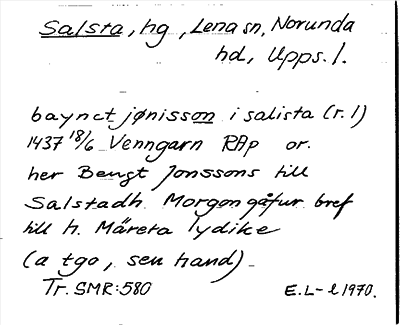 Salsta, hg, Lena sn, Norunda
hd, Upps. l.
baynct jønisson i salista (r. 1)
1437 18/6 Venngarn RAp or.
her Bengt Jonssons till
Salstadh Morgongåfur bref
till h. Märeta lydike
(a tgo, sen hand)
Tr. SMR: 580 E.L-l 1970.